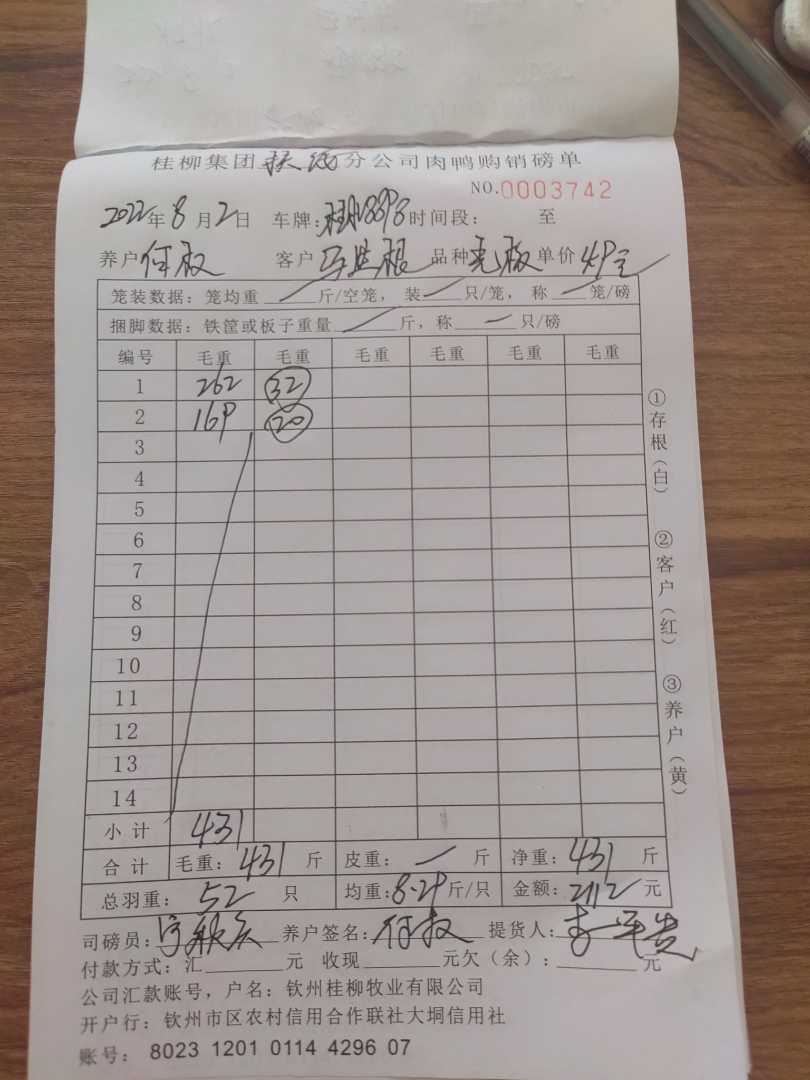 桂柳集团 分公司肉鸭购销磅单
NO.0003742
2022年8月2日 车牌: 时间段: 至
养户 何权 客户 马 根 品种 单价 4.9元
笼装数据: 笼均重 / 斤/空笼, 装 — 只/笼, 称 — 笼/磅
捆脚数据: 铁筐或板子重量 / 斤, 称 — 只/磅
编号 毛重 毛重 毛重 毛重 毛重 毛重
1 262 32
2 169 20
3
4
5
6
7
8
9
10
11
12
13
14
小计 431
合计 毛重: 431 斤 皮重: — 斤 净重: 431 斤
总羽重: 52 只 均重: 8.29 斤/只 金额: 2112 元
司磅员: 养户签名: 何权 提货人: 李
付款方式: 汇 元 收现 元欠（余）: 元
公司汇款账号, 户名: 钦州桂柳牧业有限公司
开户行: 钦州市区农村信用合作联社大垌信用社
账号: 8023 1201 0114 4296 07
①存根（白）
②客户（红）
③养户（黄）